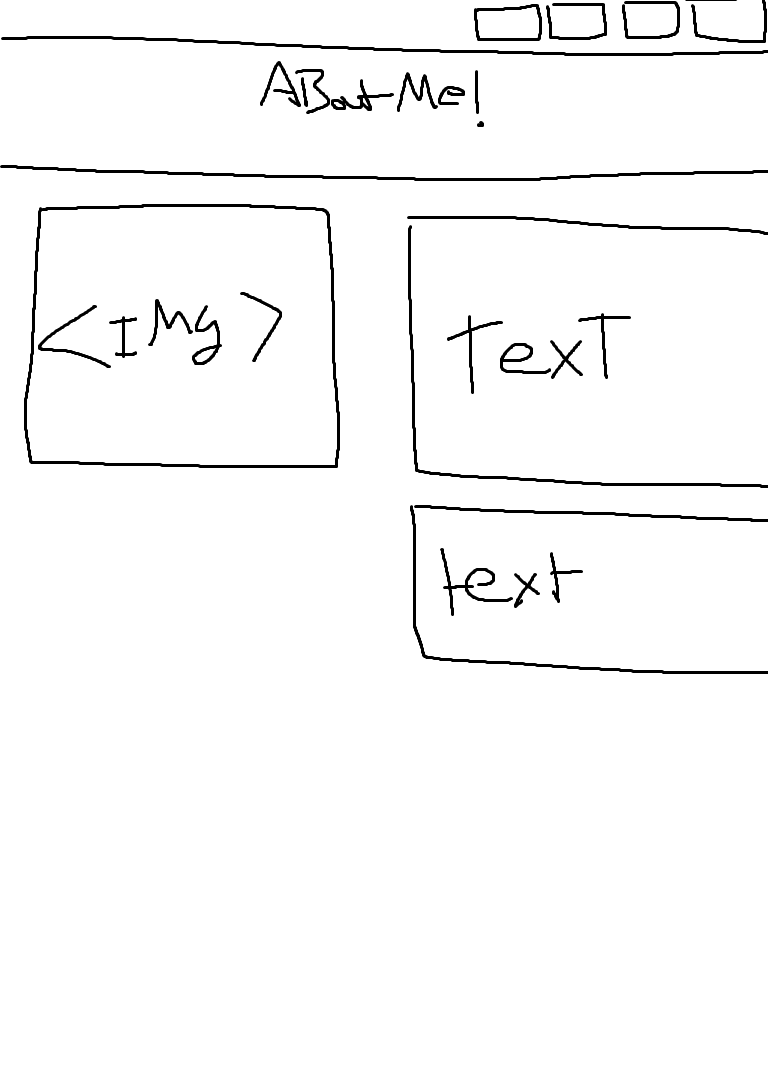 ABout Me!
<IMg>
TexT
text